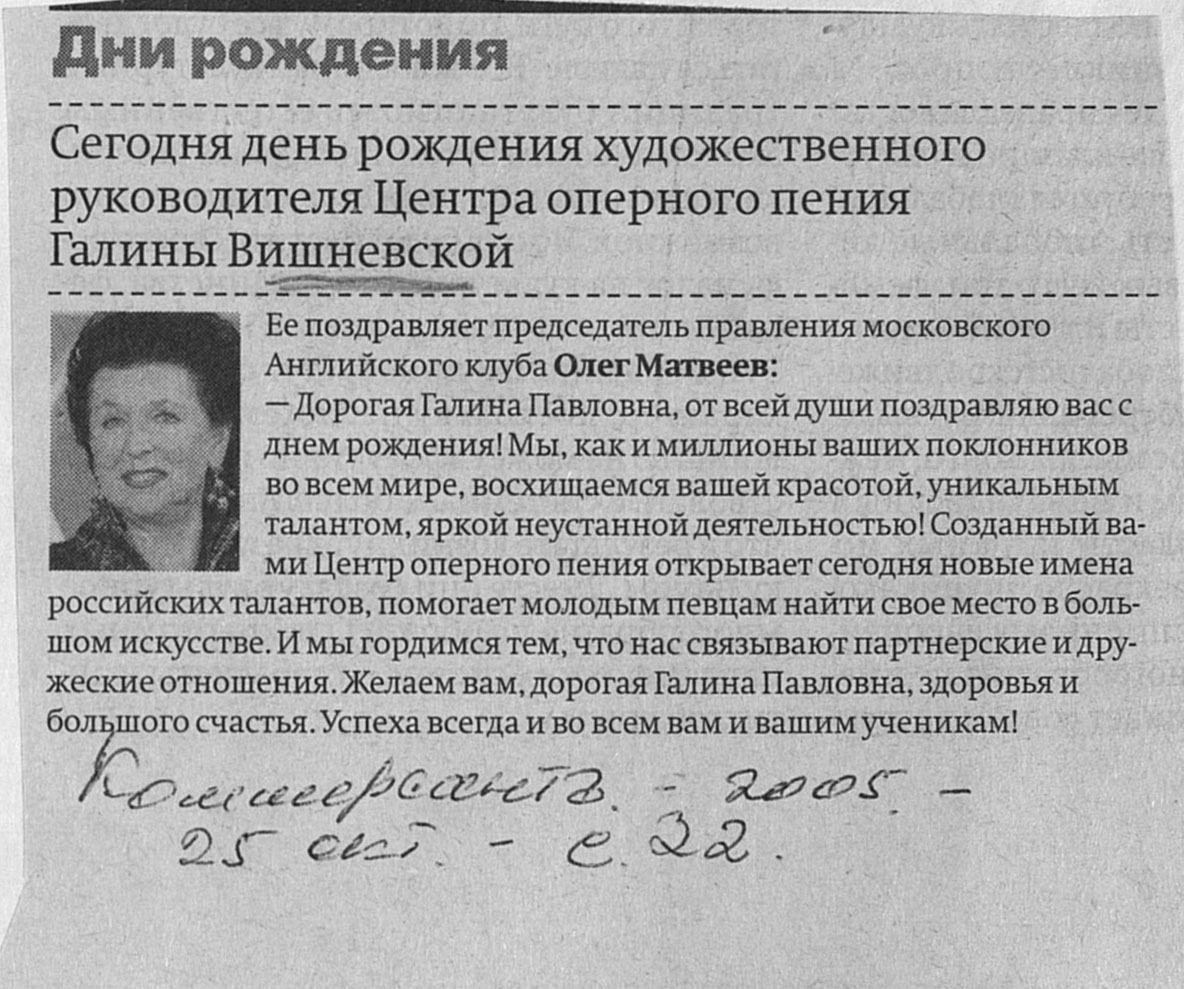 Дни рождения
Сегодня день рождения художественного
руководителя Центра оперного пения
Галины Вишневской
Ее поздравляет председатель правления московского
Английского клуба Олег Матвеев:
— Дорогая Галина Павловна, от всей души поздравляю вас с
днем рождения! Мы, как и миллионы ваших поклонников
во всем мире, восхищаемся вашей красотой, уникальным
талантом, яркой неустанной деятельностью! Созданный ва-
ми Центр оперного пения открывает сегодня новые имена
российских талантов, помогает молодым певцам найти свое место в боль-
шом искусстве. И мы гордимся тем, что нас связывают партнерские и дру-
жеские отношения. Желаем вам, дорогая Галина Павловна, здоровья и
большого счастья. Успеха всегда и во всем вам и вашим ученикам!
Коммерсантъ. - 2005. -
25 окт. - с. 32.